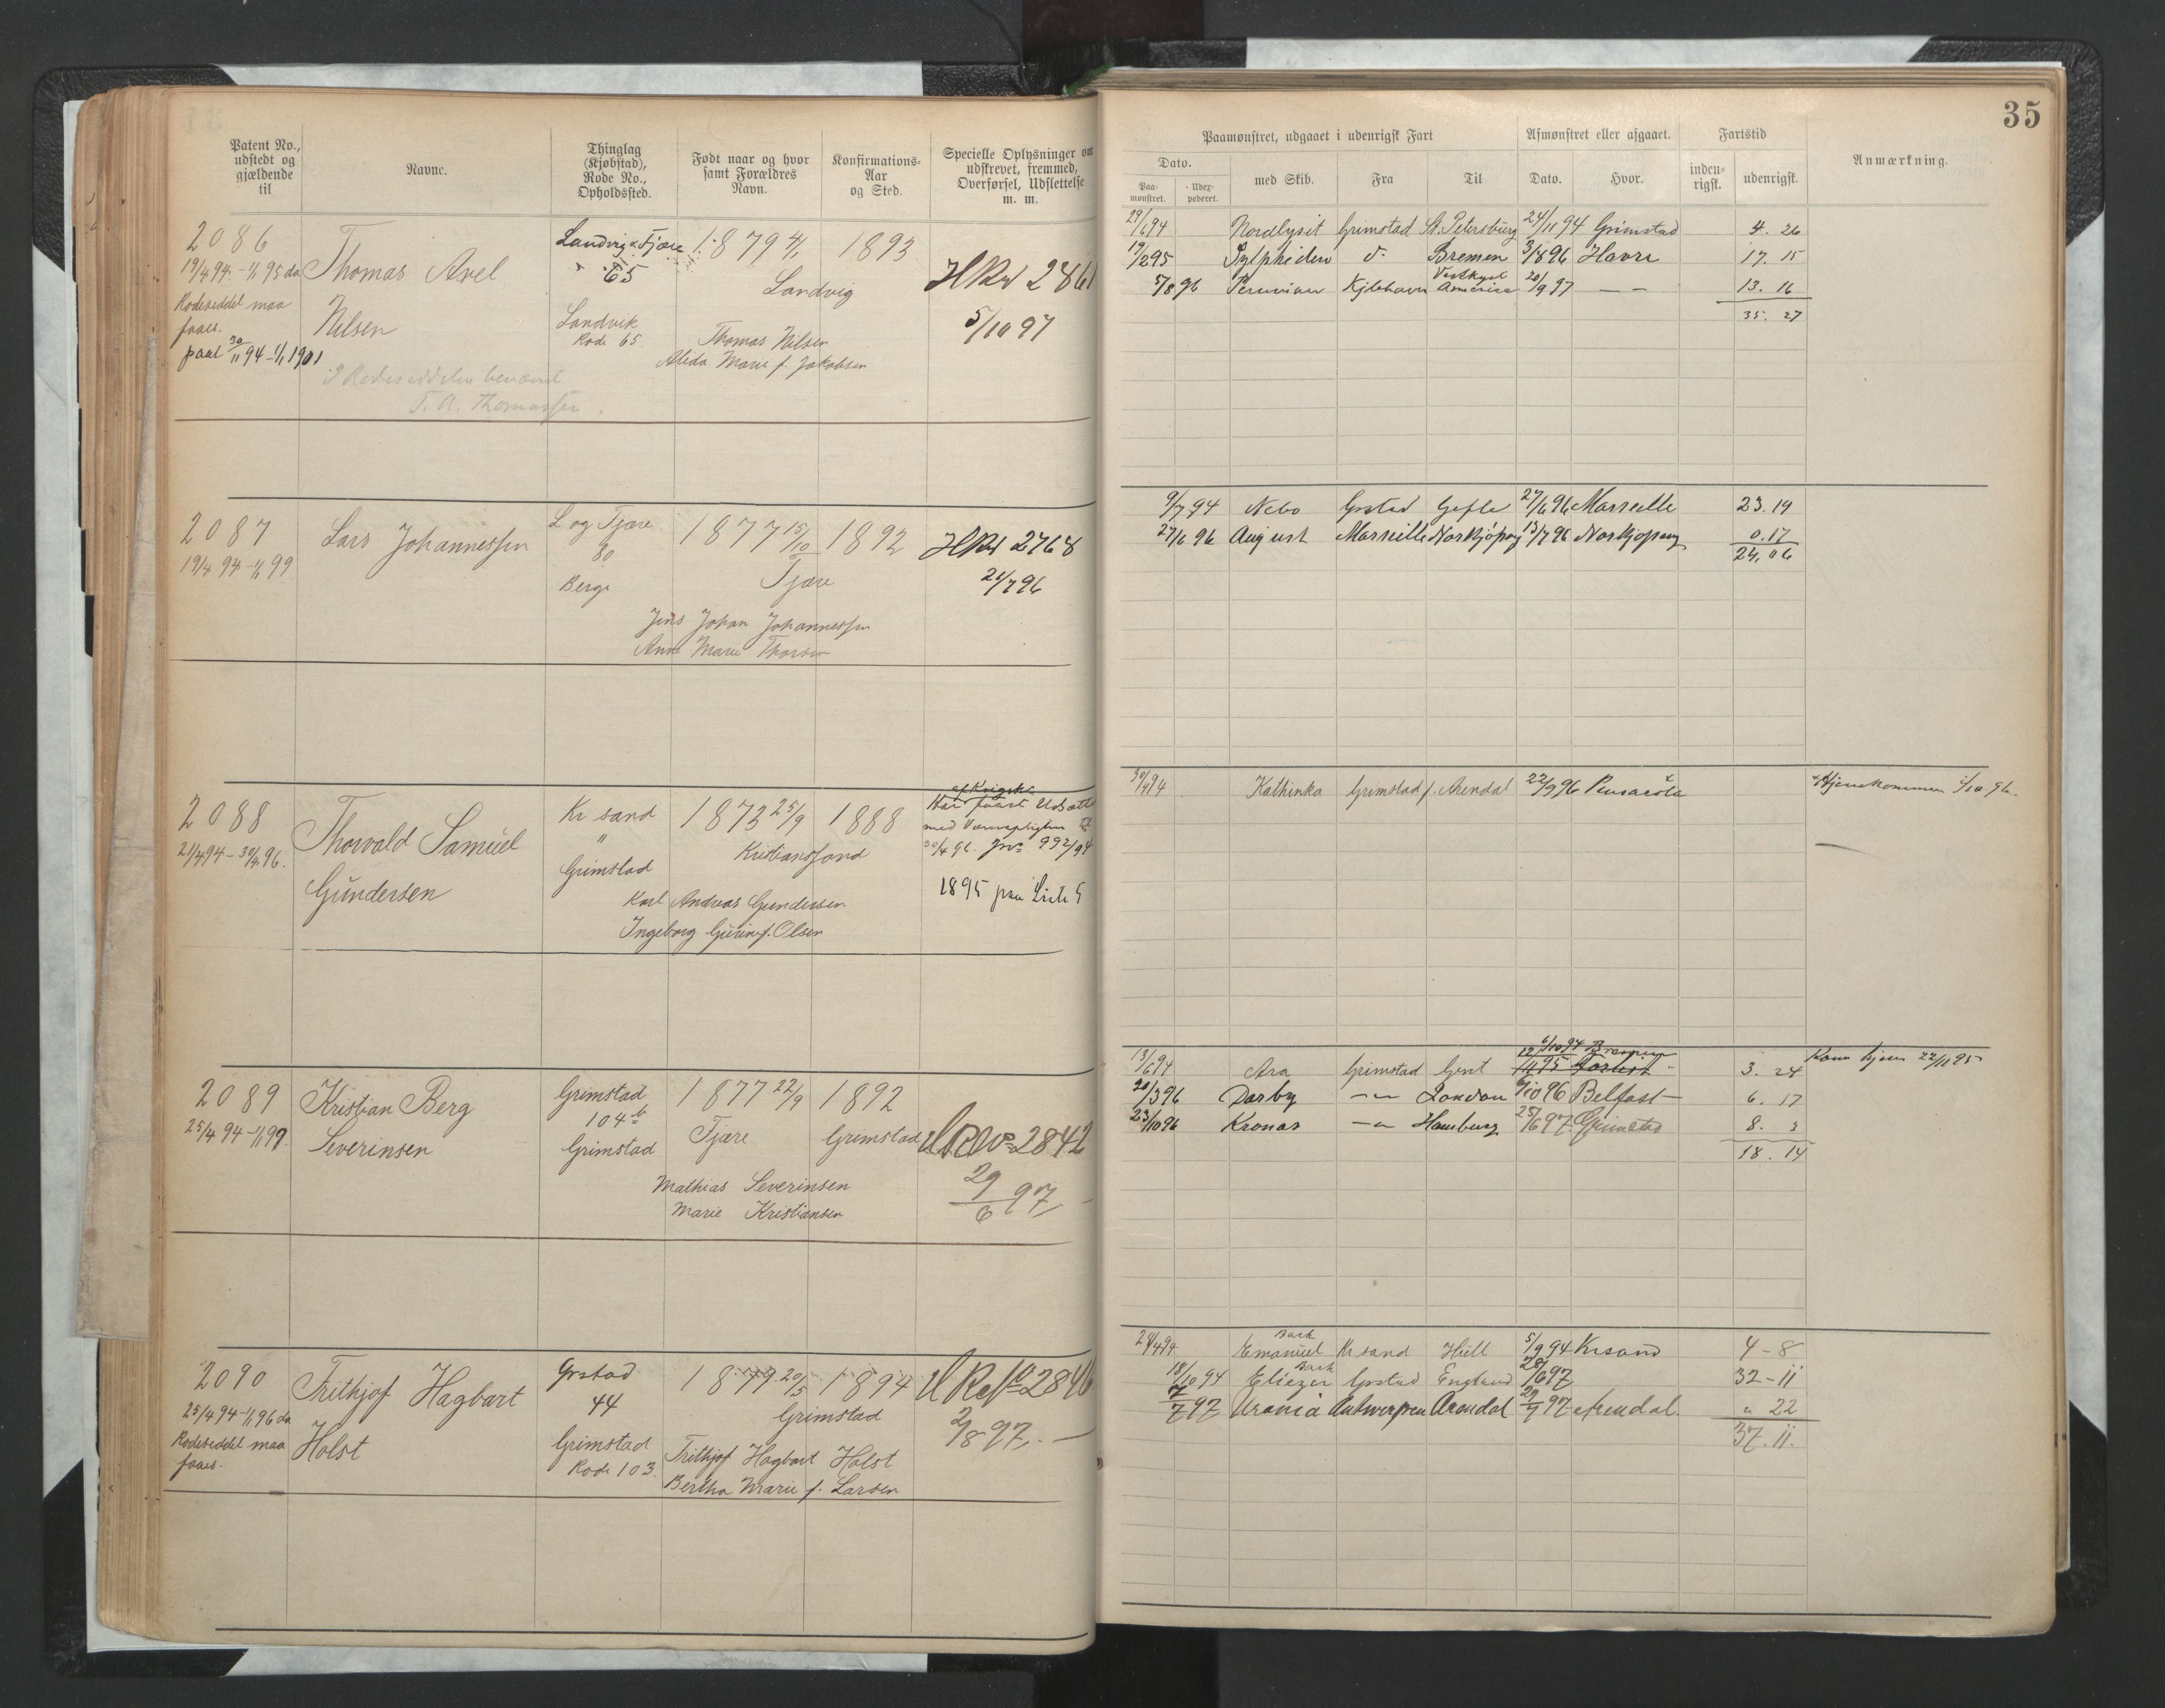 35
Patent No., udstedt og gjældende til
Navne.
Thinglag (Kjøbstad), Rode No., Opholdssted.
Født naar og hvor samt Forældres Navn.
Konfirmations-Aar og Sted.
Specielle Oplysninger om udskrevet, fremmed, Overførsel, Udslettelse m. m.
Paamønstret, udgaaet i udenrigsk Fart
Afmønstret eller afgaaet.
Fartstid
Anmærkning.
Dato.
Paamønstret.
Udexpederet.
med Skib.
Fra
Til
Dato.
Hvor.
indenrigsk.
udenrigsk.
2086
19/4 94 - 1/1 95 da
Rodeseddel maa
faaes.
paal 30/11 94 - 1/1 1901
Thomas Axel
Nilsen
I Rodeseddelen benævnt
T. A. Thomassen.
Landvig & Fjære
65
Landvik
Rode 65
1879 4/1 1893
Landvig
Thomas Nilsen
Aleda Marie f. Jakobsen
2861
5/10 97
29/6 94 Nordlyset Grimstad St. Petersburg 24/11 94 Grimstad 4. 26
19/2 95 Sylphiden d. Bremen 3/8 96 Havre 17. 15
5/8 96 Peruvian Kjbhavn Vestkyst America 20/9 97 — — 13. 16
35. 27
2087
19/4 94 - 1/1 99
Lars Johannessen
L og Fjære
80
Berge
1877 15/10 1892
Fjære
Jens Johan Johannessen
Anne Marie Thorsen
2768
21/7 96
9/7 94 Nebo Grstad Gefle 27/6 96 Marseille 23. 19
27/6 96 August Marseille Norkjöping 13/7 96 Norkjöping 0. 17
24, 06
2088
21/4 94 - 30/4 96.
Thorvald Samuel
Gundersen
Kr sand
"
Grimstad
1873 25/9 1888
Kristianssand
Karl Andreas Gundersen
Ingeborg f. Olsen
Har faaet Udsætt
med Værnepligten til
30/4 96. Jno 992/94
1895 paa Liste 5
30/4 94 Kathinka Grimstad f. Arendal 22/9 96 Pensacola
Hjemkommen /10 96.
2089
25/4 94 - 1/1 99
Kristian Berg
Severinsen
Grimstad
104 b
Grimstad
1877 22/9 1892
Fjære Grimstad
Mathias Severinsen
Marie Kristiansen
2842
29/6 97
6/10 94
13/6 94 Ara Grimstad Gent 3. 24
Kom hjem 22/11 95
20/3 96 Darby — Londou 6/10 96 Belfast 6. 17
23/10 96 Kronos — Hamburg 25/6 97 Grimstad 8. 3
18. 14
2090
25/4 94 - 1/1 96 da
Rodeseddel maa
faaes.
Frithjof Hagbart
Holst
Grstad
44
Grimstad
Rode 103
1879 20/5 1894
Grimstad
Frithjof Hagbart Holst
Bertha Marie f. Larsen
2846
2/8 97
28/4 94 Bark Emanuel Kr sand Hull 5/9 94 Krsand 4 - 8
18/10 94 Bark Eliezer Grstad England 28/6 97 32 - 11
7/7 97 Urania Antwerpen Arendal 29/7 97 Arendal. " 22
37. 11.